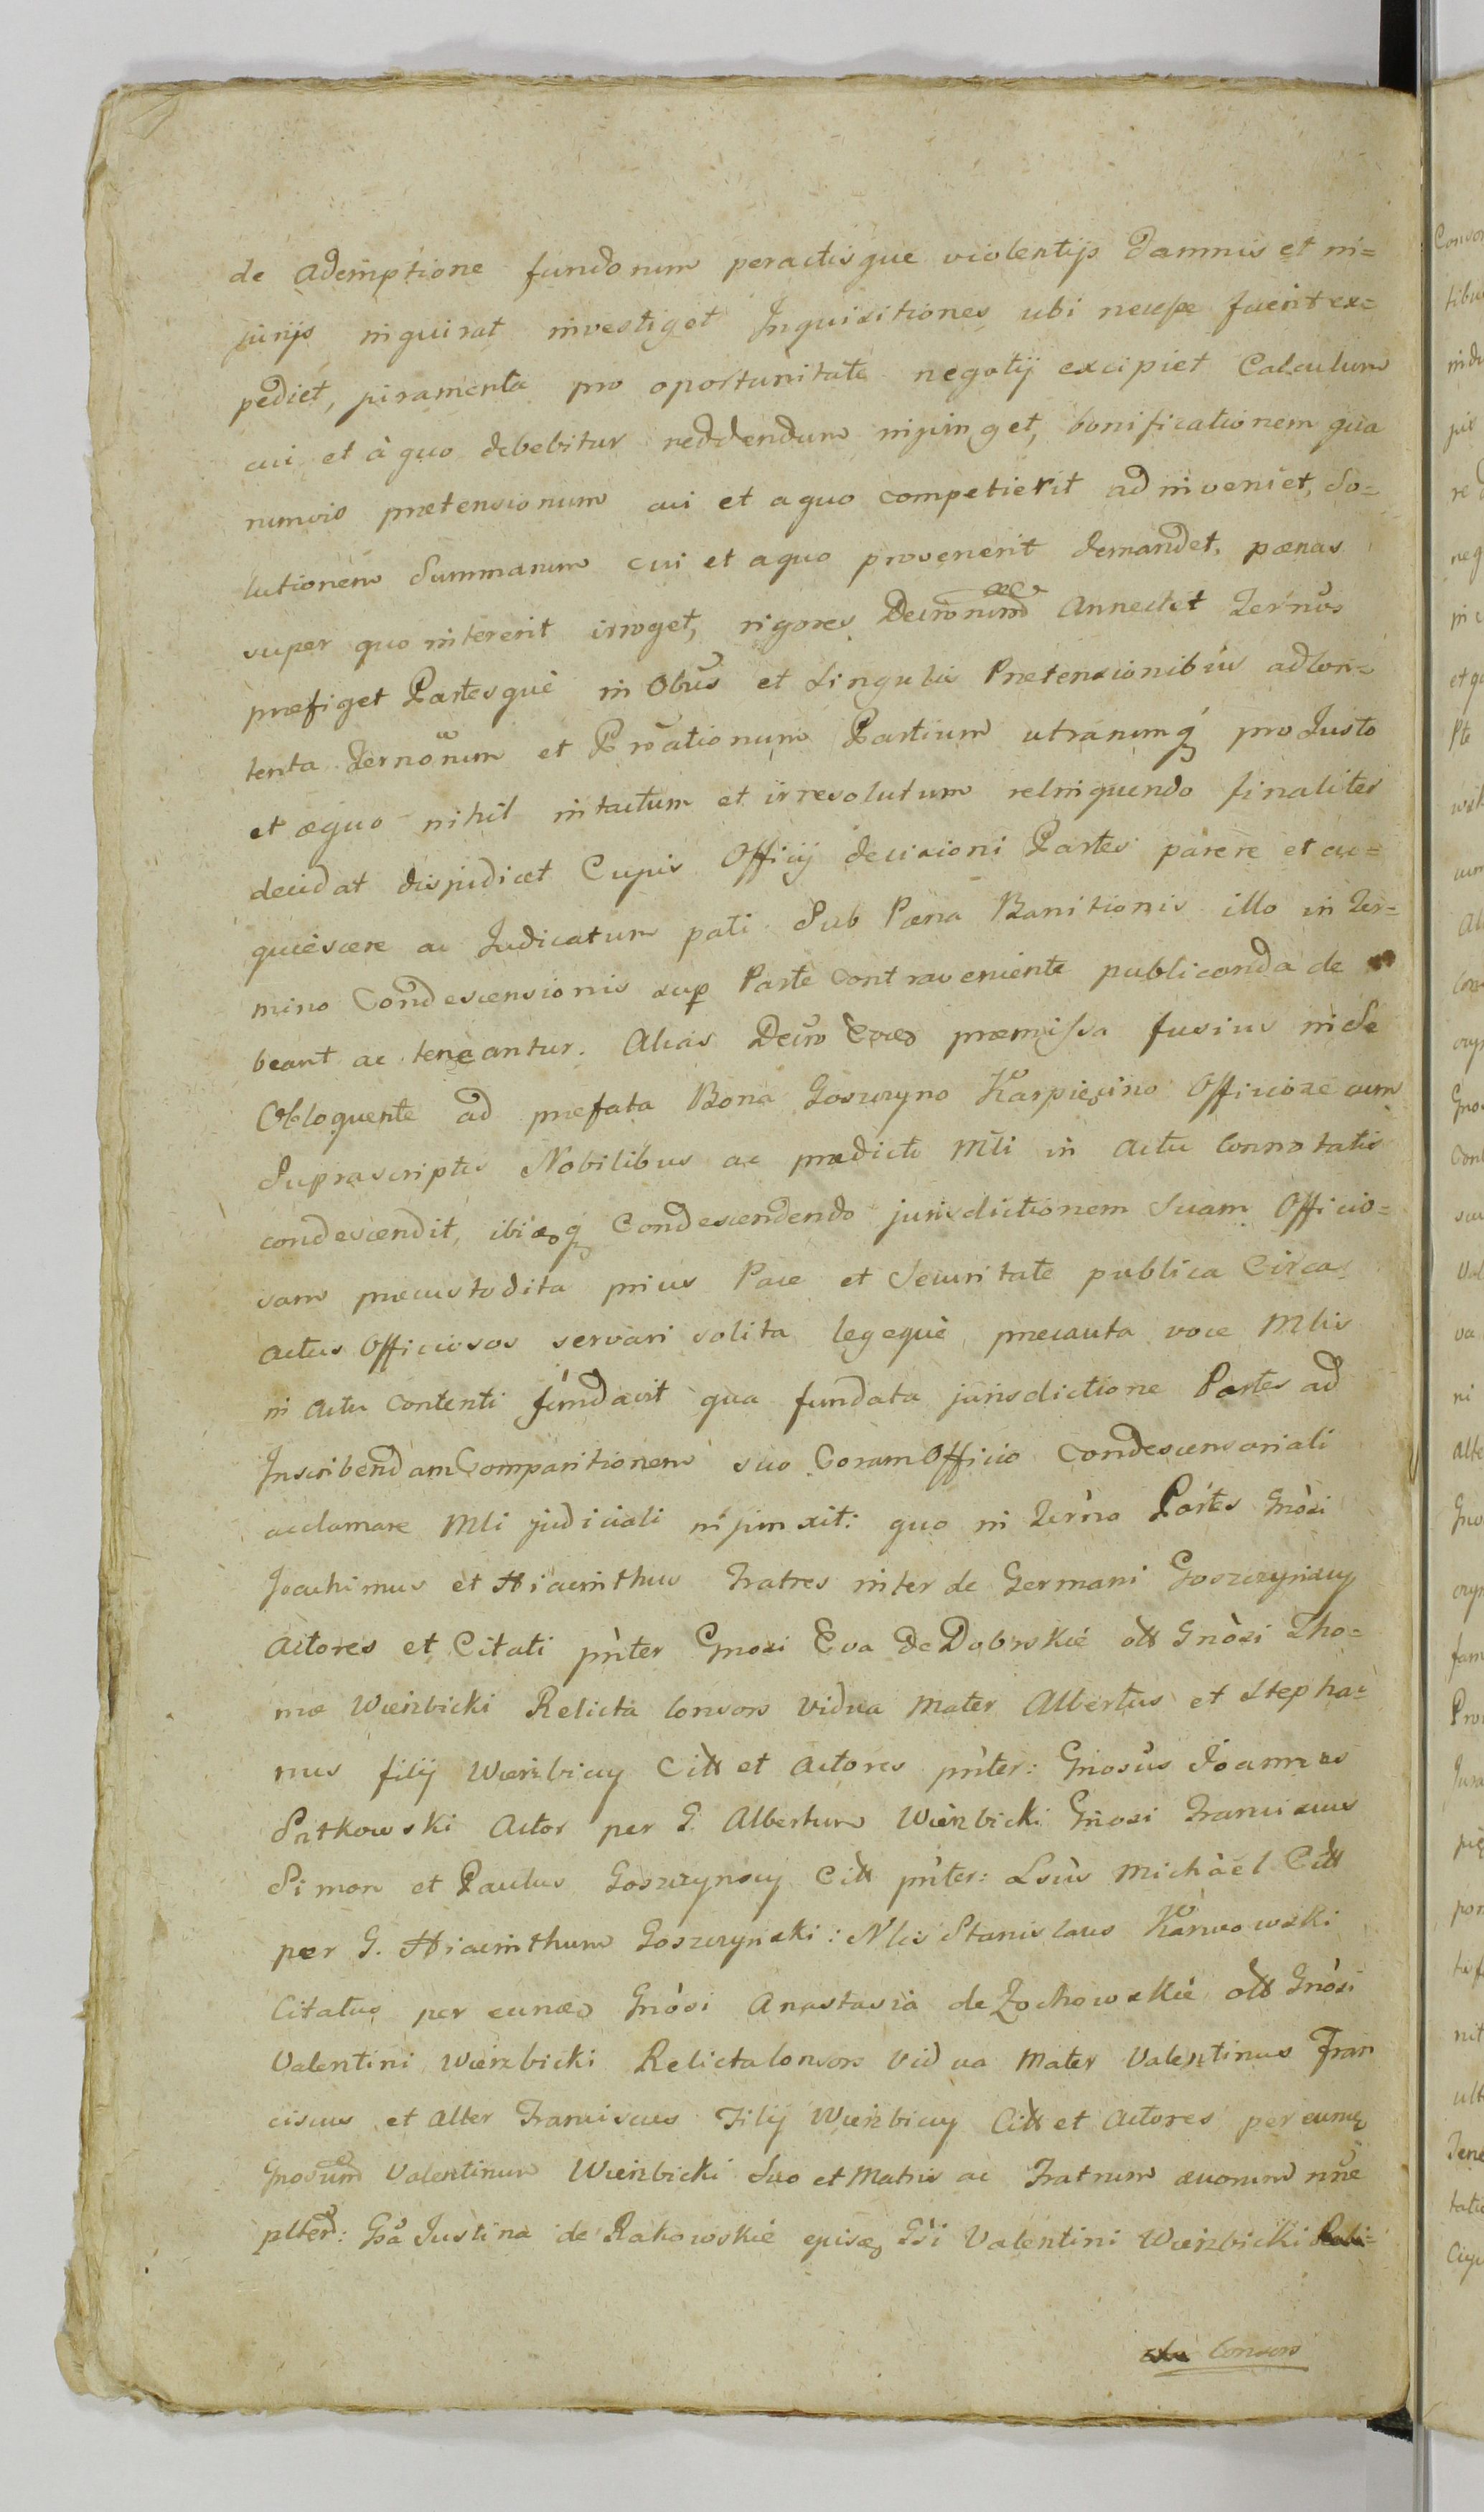 de ademptione fundorum peractisque violentijs damnis et in=
jurijs inquirat investiget Inquisitiones ubi necesse fuerit ex=
pediet, juramenta pro oportunitate negotij excipiet Calculum
cui et à quo debebitur reddendum injunget, bonificationem qua
rumvis praetensionum cui et a quo competierit adinveniet, So=
lutionem Summarum cui et a quo provenerit demandet, paenas
super quo intererit irroget, rigores Decronum Annectet Ternos
praefiget Partesquè in Obus et Singulis Praetensionibus ad Con=
tenta Ternorum et Proationum Partium utrarumq pro Justo
et aequo nihil intactum et irresolutum relinquendo finaliter
decidat disjudicet Cujus Officij decisioni Partes parere et ac=
quièscere ac Judicatum pati Sub Paena Banitionis illo in Ter=
mino Condescensionis sup Parte Contraveniente publicanda de
beant ac teneantur. Alias Decro praemissa fusius in Se
Obloquente ad praefata Bona Goszczyno Karpięcino Officiose cum
Suprascriptis Nobilibus ac praedicto Mli in Actu Connotatis
condescendit, ibidq Condescendendo jurisdictionem Suam Officio=
sam praecustodita prius Pace et Securitate publica Circa
actus Officiosos servari solita legequè praecauta voce Mlis
in Actu Contenti fundavit qua fundata jurisdictione Partes ad
Inscribendam Comparitionem suo Coram Officio Condescensoriali
acclamare Mli judiciali injunxit: quo in Terno Partes Gnosi
Joachimus et Hiacinthus Fratres inter se Germani Goszczynscy
Actores et Citati pnter Gnosi Eva de Dobrskie olt Gnosi Tho=
mae Wierzbicki Relicta Consors Vidua Mater Albertus et Stepha=
nus filij Wierzbiccy Citt et Actores pnter: Gnosus Joannes
Sutkowski Actor per G. Albertum Wierzbicki Gnosi Franciscus
Simon et Paulus Goszczynscy Citt pnter: Lsus Michàel Citt
per G. Hiacinthum Goszczynski: Nlis Stanislaus Karwowski
Citatus per eund Gnosi Anastasia de Zochowskie olt Gnosi
Valentini Wierzbicki Relicta Consors Vidua Mater Valentinus Fran
ciscus et alter Franciscus Filij Wierzbiccy Citt et Actores per eund
Gnosum Valentinum Wierzbicki Suo et Matris ac Fratrum suorum nne
plter: Gsa Justina de Rakowskie ejusd Gsi Valentini Wierzbicki Reli=
Consors